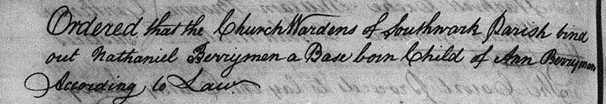 Ordered that the Church Wardens of Southwark Parish bind
out Nathaniel Berrymen a Base born Child of Ann Berryman
According to Law.